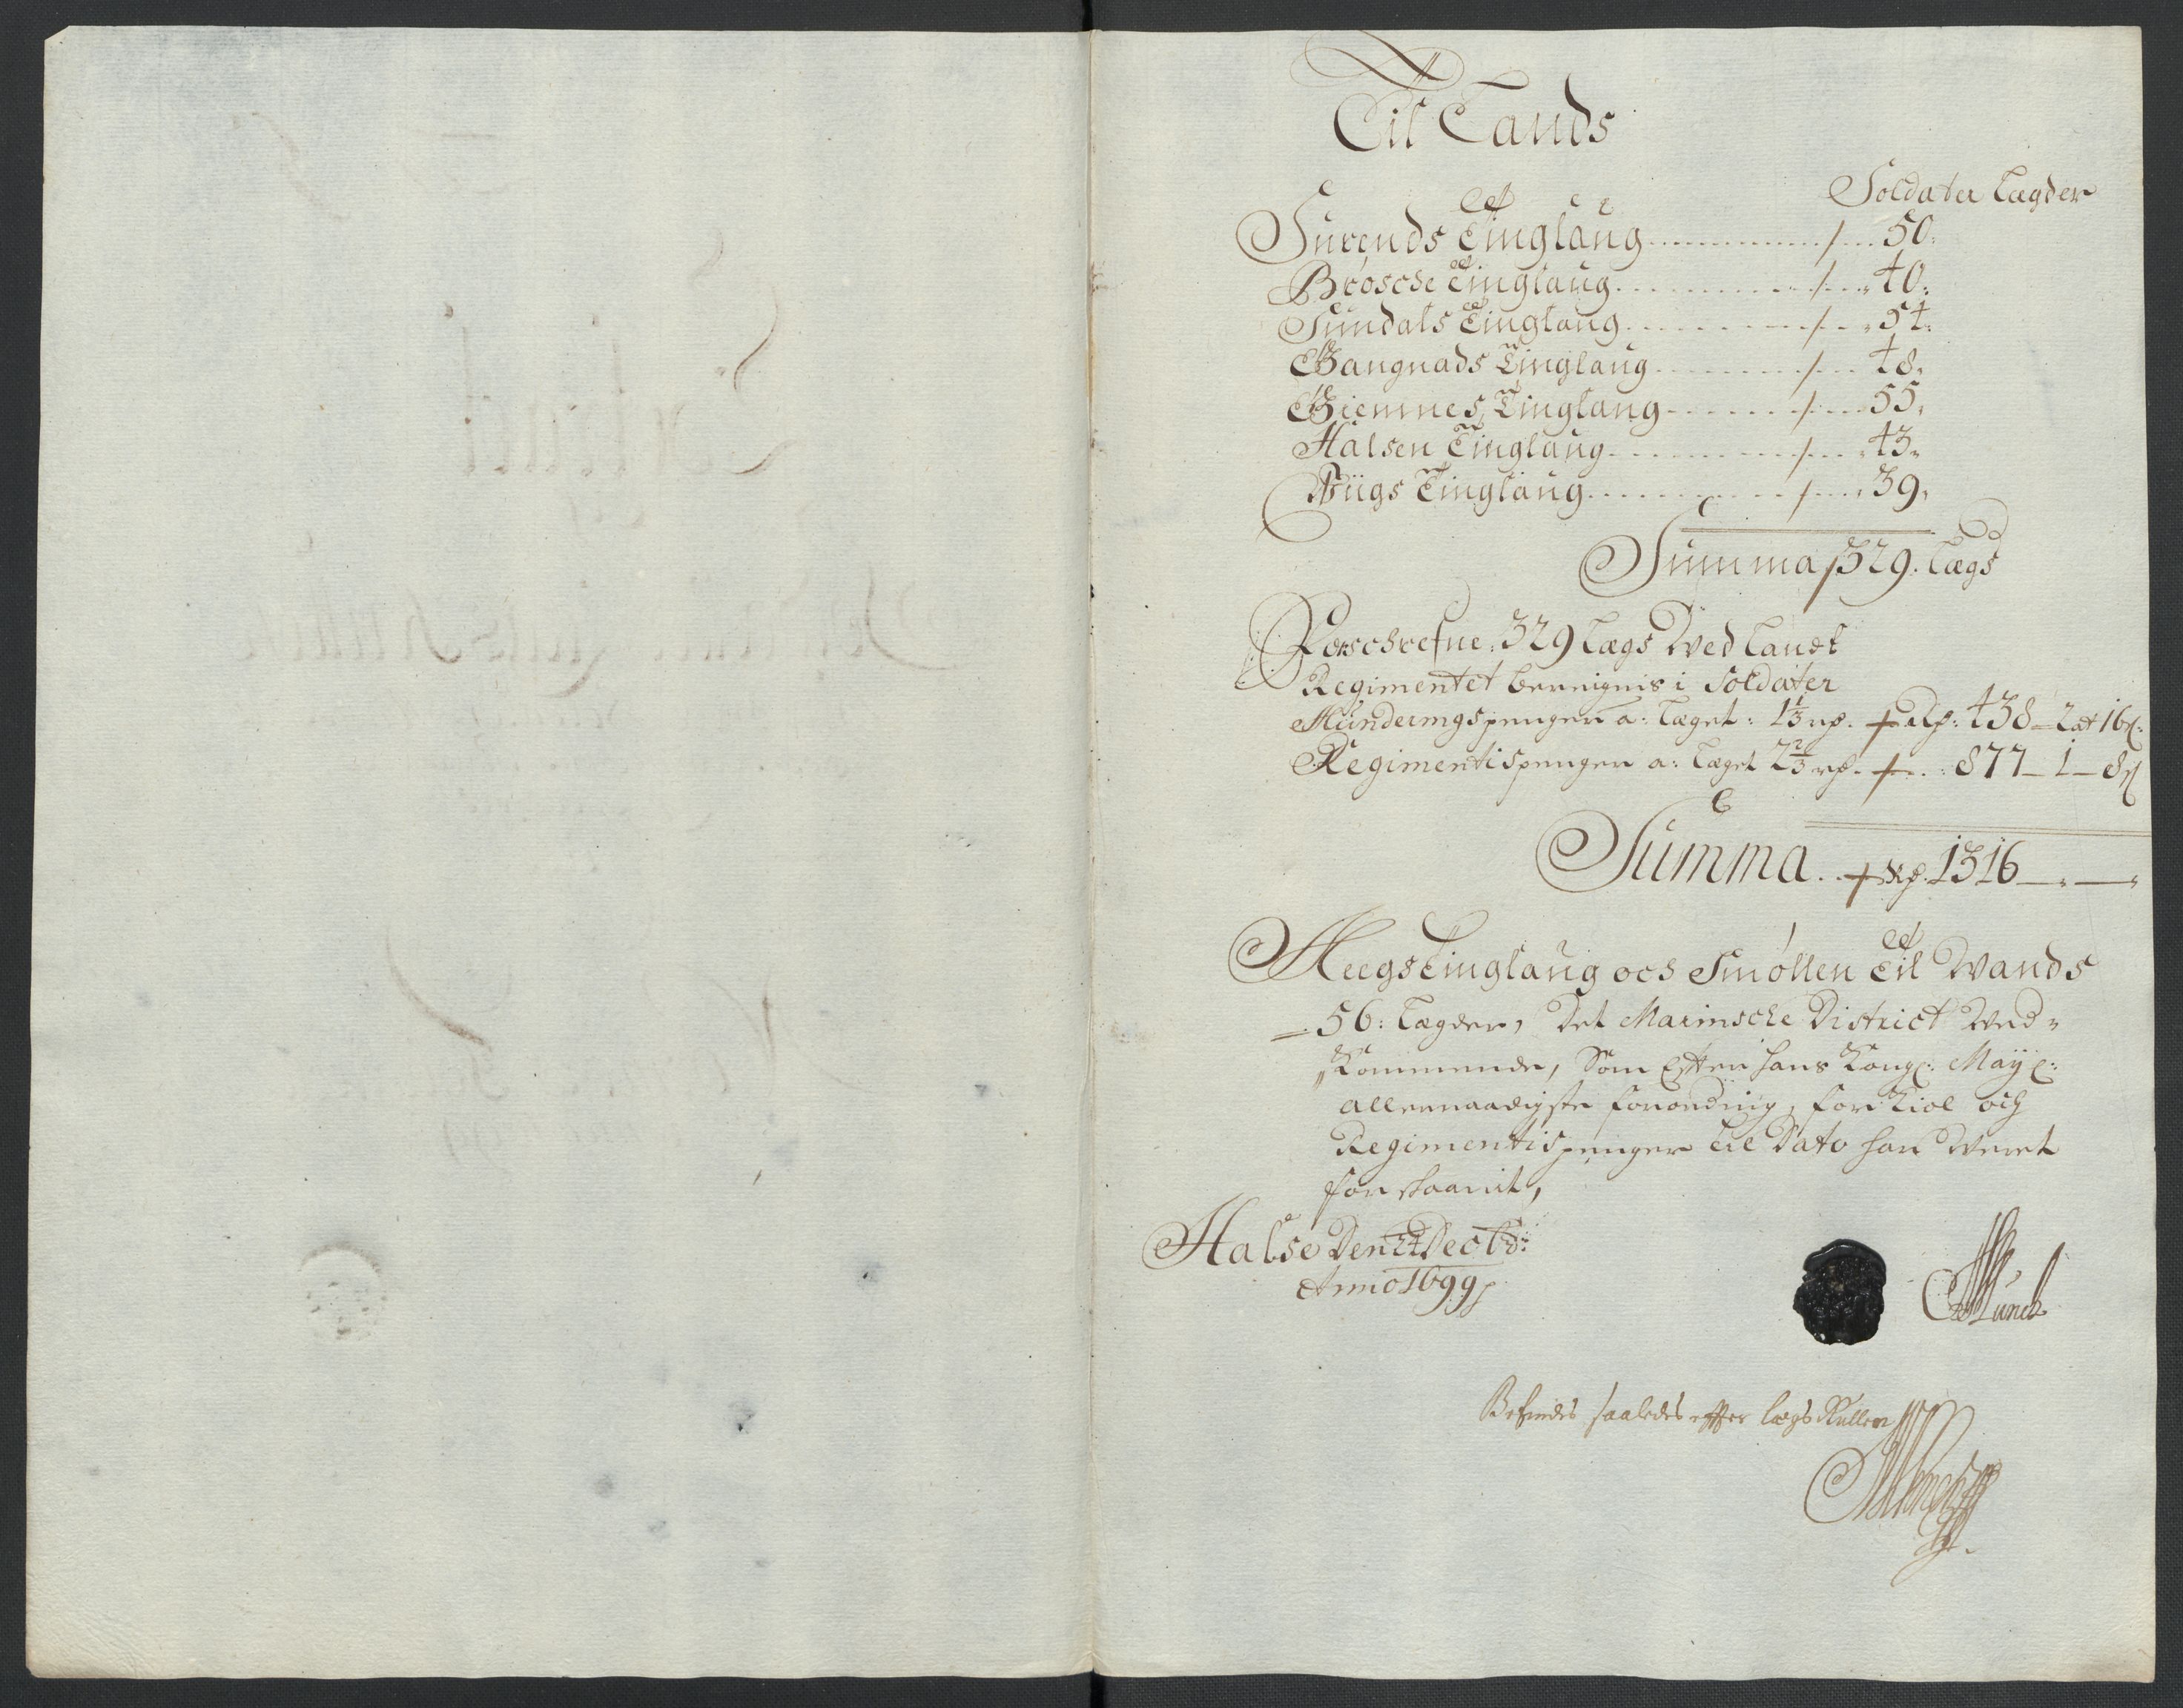 Til Lands
Soldater Lægder
Surends Tinglaug 50:
Brøsche Tinglaug 40:
Sundals Tinglaug 54:
Gangnads Tinglaug 48,
Giemnes Tinglaug 55,
Halsen Tinglaug 43,
Wiigs Tinglaug 39,
Summa 329. Lægs
Forschrefne: 329 Lægs Wed Landt
Regimentet berreignis i Soldater
Munderingspenger a: Læget: 1⅓ rp. Rp: 438_2 ort 16 s:
Regimentispenger a: Læget 2⅔ rp. 877_1_8 s
Summa Rp. 1316
Heegs Tinglaug och Smøllen Til Wands
56: Lægder, Det Marinsche District Wed=
Kommende, Som Efter Hans Kongl: May:
allernaadigste forordning, for Kiol och
Regimentispenger til Dato har Weret
forskaanet,
Halse Den 24 Decbr:
Anno 1699
Munch
Befindes saaledes effter lægs Rullen